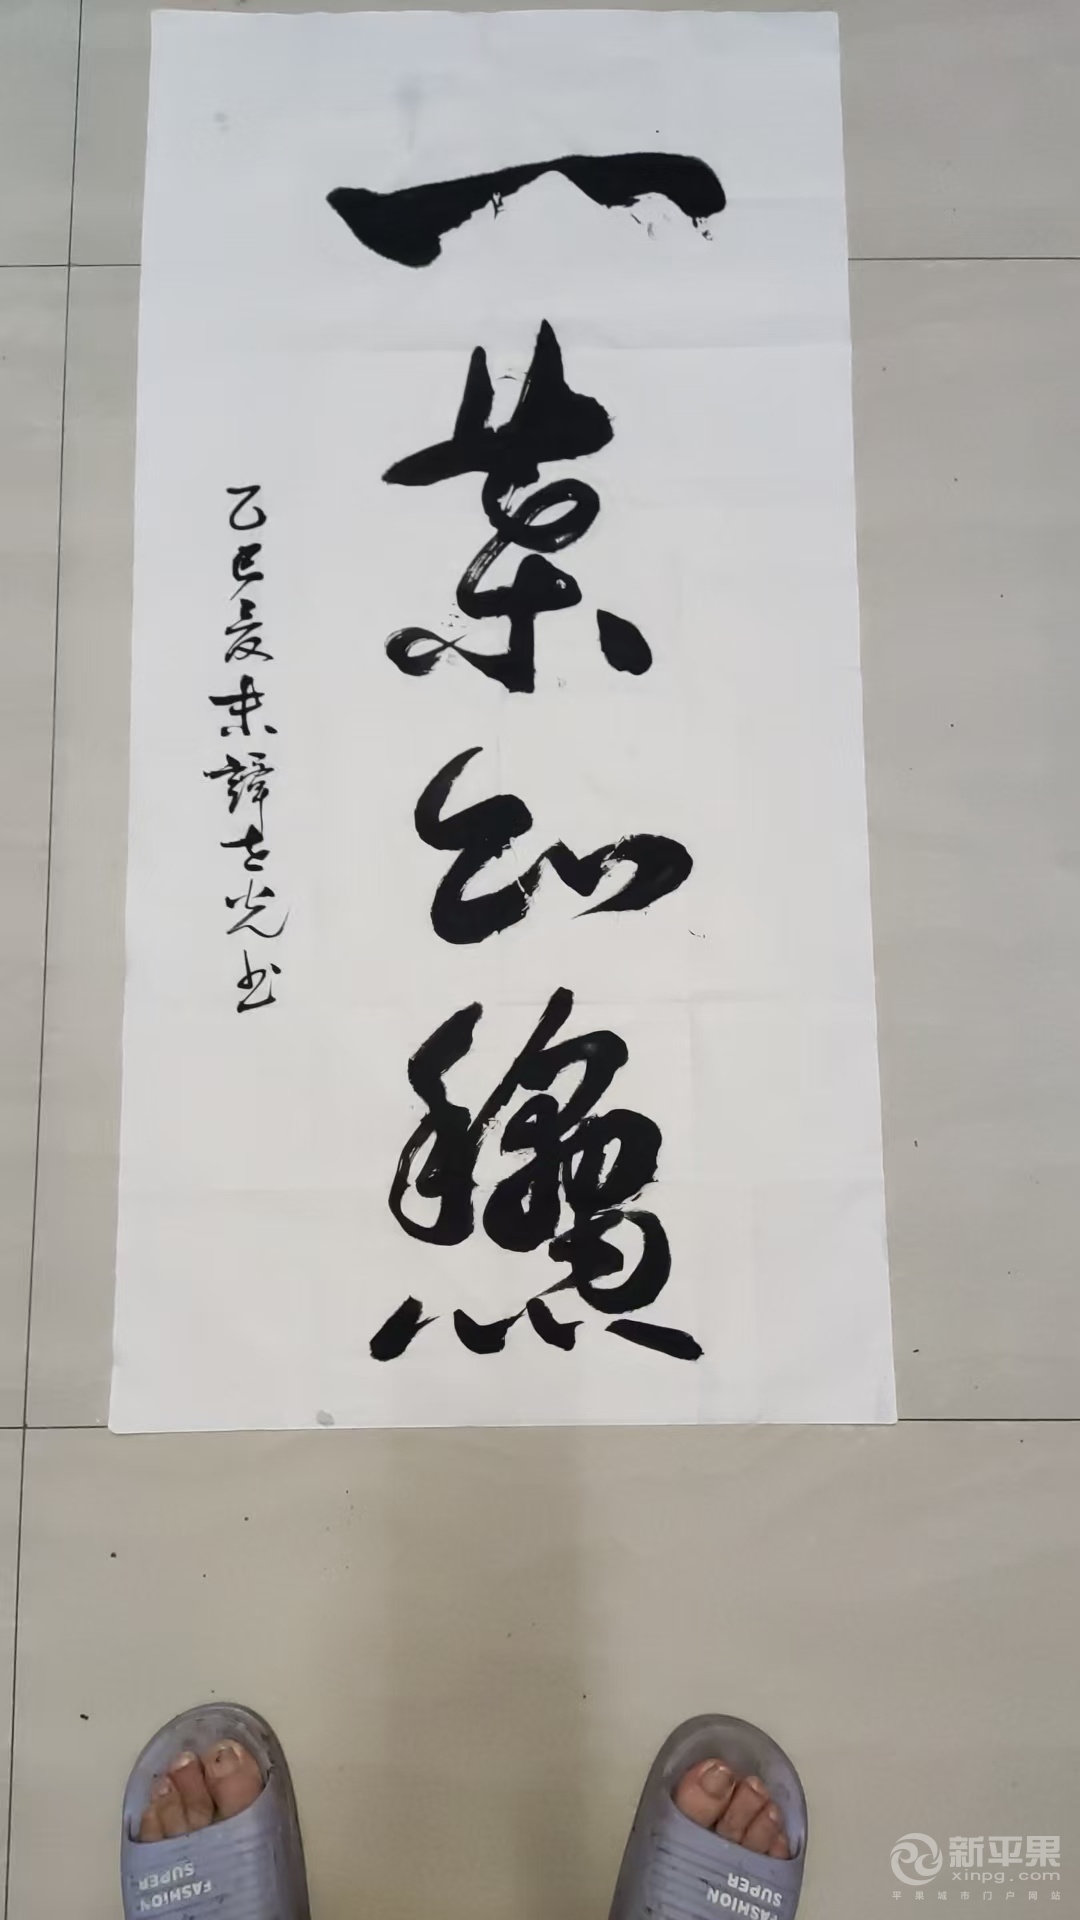 一葉知龝
乙巳夏末譚光书
FASHION
SUPER
FASHION
SUPER
新平果
xinpg.com
平果城市门户网站